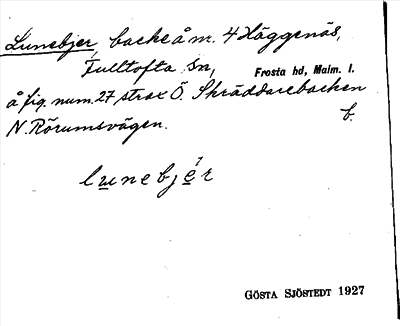 Lunebjer, backe å nr. 4 Häggenäs,
Fulltofta Sn, Frosta hd, Malm. l.
å fig. num. 27 strax Ö. Skräddarebacken
N. Rörumsvägen. b.
lunebjer
GÖSTA SJÖSTEDT 1927